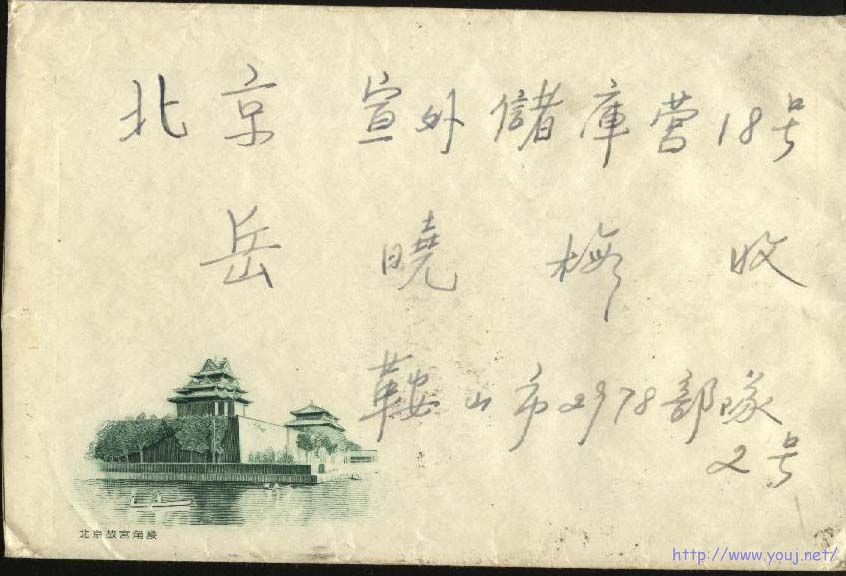 北京 宣外儲庫营18号
岳曉梅 收
鞍山市2978部隊
2号
北京故宮角楼
http://www.youj.net/